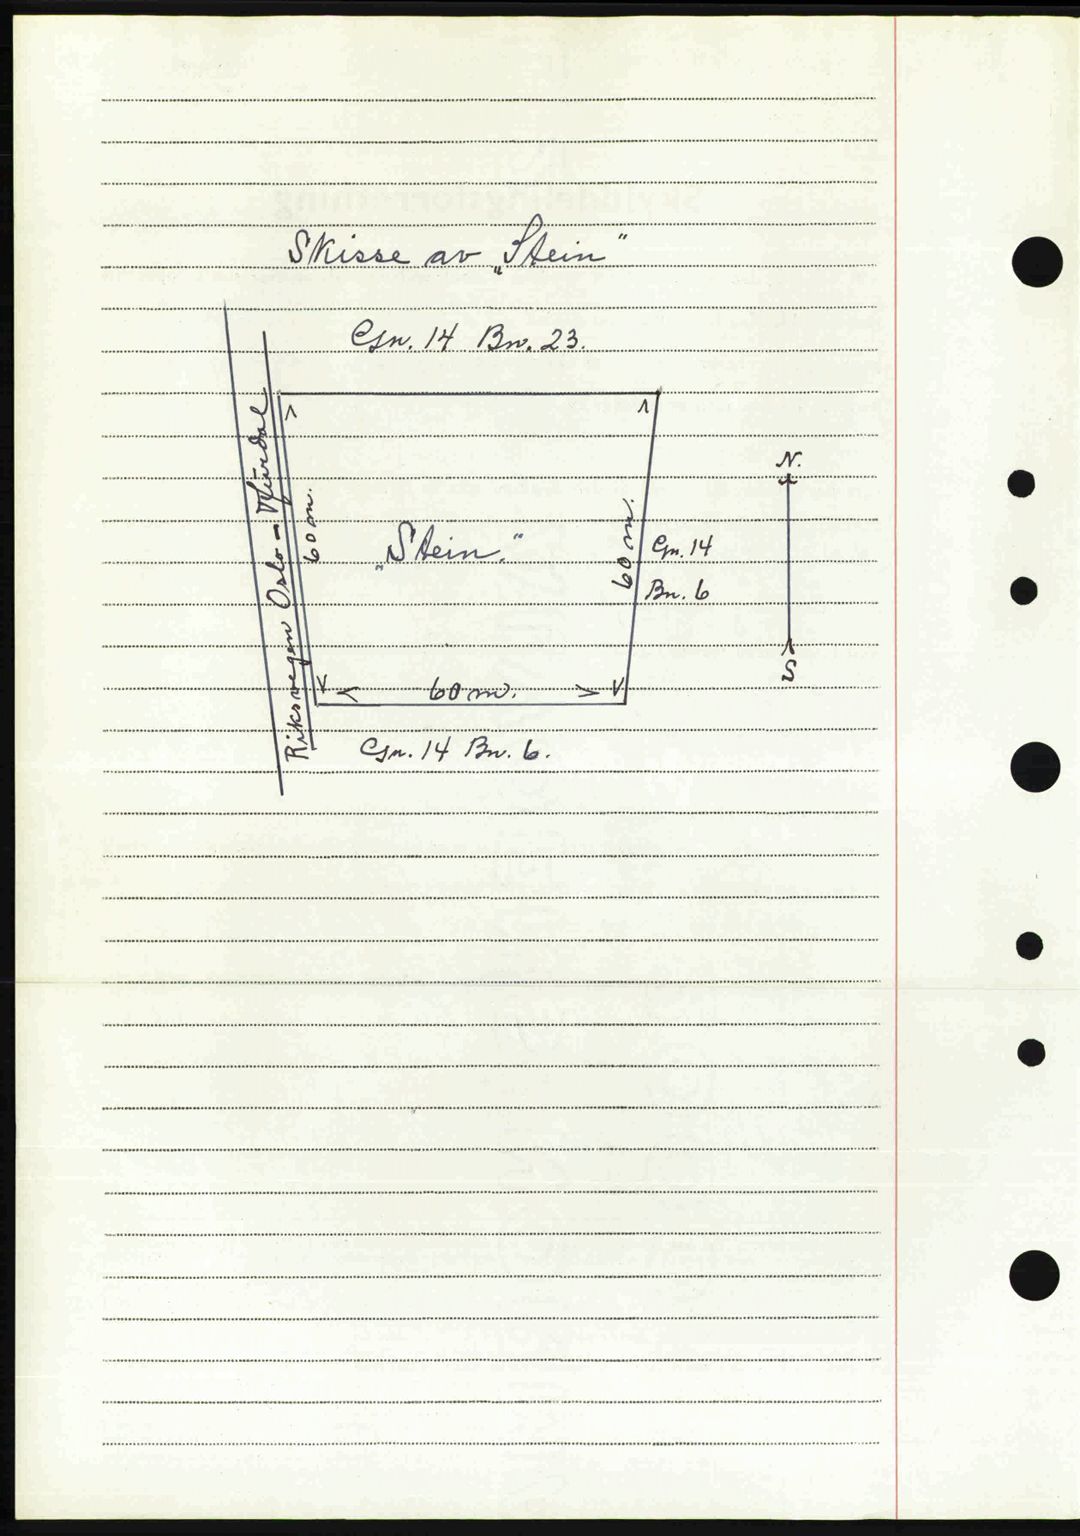 Skisse av „Stein“
Gn. 14 Bn. 23.
Riksvegen Oslo –
60 m.
„Stein.“
60 m.
Gn. 14
Bn. 6
N.
S
60 m.
Gn. 14 Bn. 6.